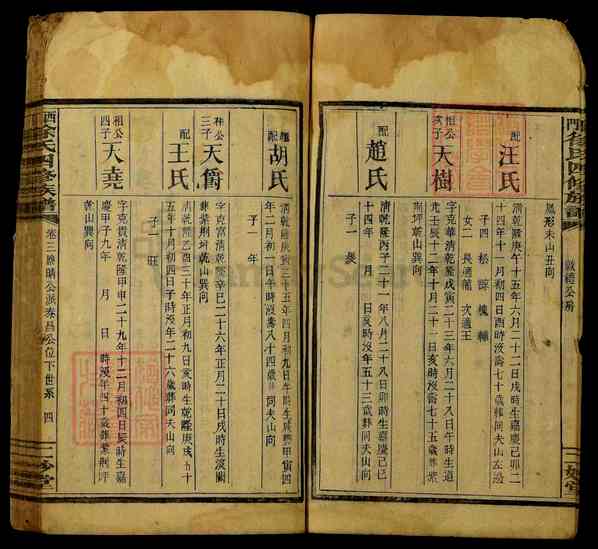 鳳形未山丑向
配
汪氏
清乾隆庚午十五年六月二十二日戌時生嘉慶己卯二
十四年十一月初四日酉時沒壽七十歲葬同夫山左
子四 松
女二 長適 次適王
祖公
次子
天樹
字克華清乾隆戊寅二十三年六月二十八日午時生道
光壬辰十二年十月二十三日亥時沒年七十五歲葬紫
荊坪乾山巽向
配
趙氏
清乾隆丙子二十一年八月二十八日卯時生嘉慶己巳
十四年 月 日亥時沒年五十三歲葬同夫山向
子一
繼配
胡氏
清乾隆庚寅三十五年四月初九日午時生咸豐甲寅四
年二月初一日午時沒壽八十四歲葬同夫山向
子一 年
祖公
三子
天爵
字克富清乾隆辛巳二十六年正月二十日戌時生沒闕
葬紫荊坪乾山巽向
配
王氏
清乾隆乙酉三十年正月初九日亥時生乾隆庚戌五十
五年十月初四日子時沒年二十六歲葬同夫山向
子一 旺
祖公
四子
天堯
字克貴清乾隆甲申二十九年十二月初四日亥時生嘉
慶甲子九年 月 日 時沒年四十歲葬紫荊坪
乾山巽向
徐氏四修族譜
卷三 勝公派泰昌公位下世系 四